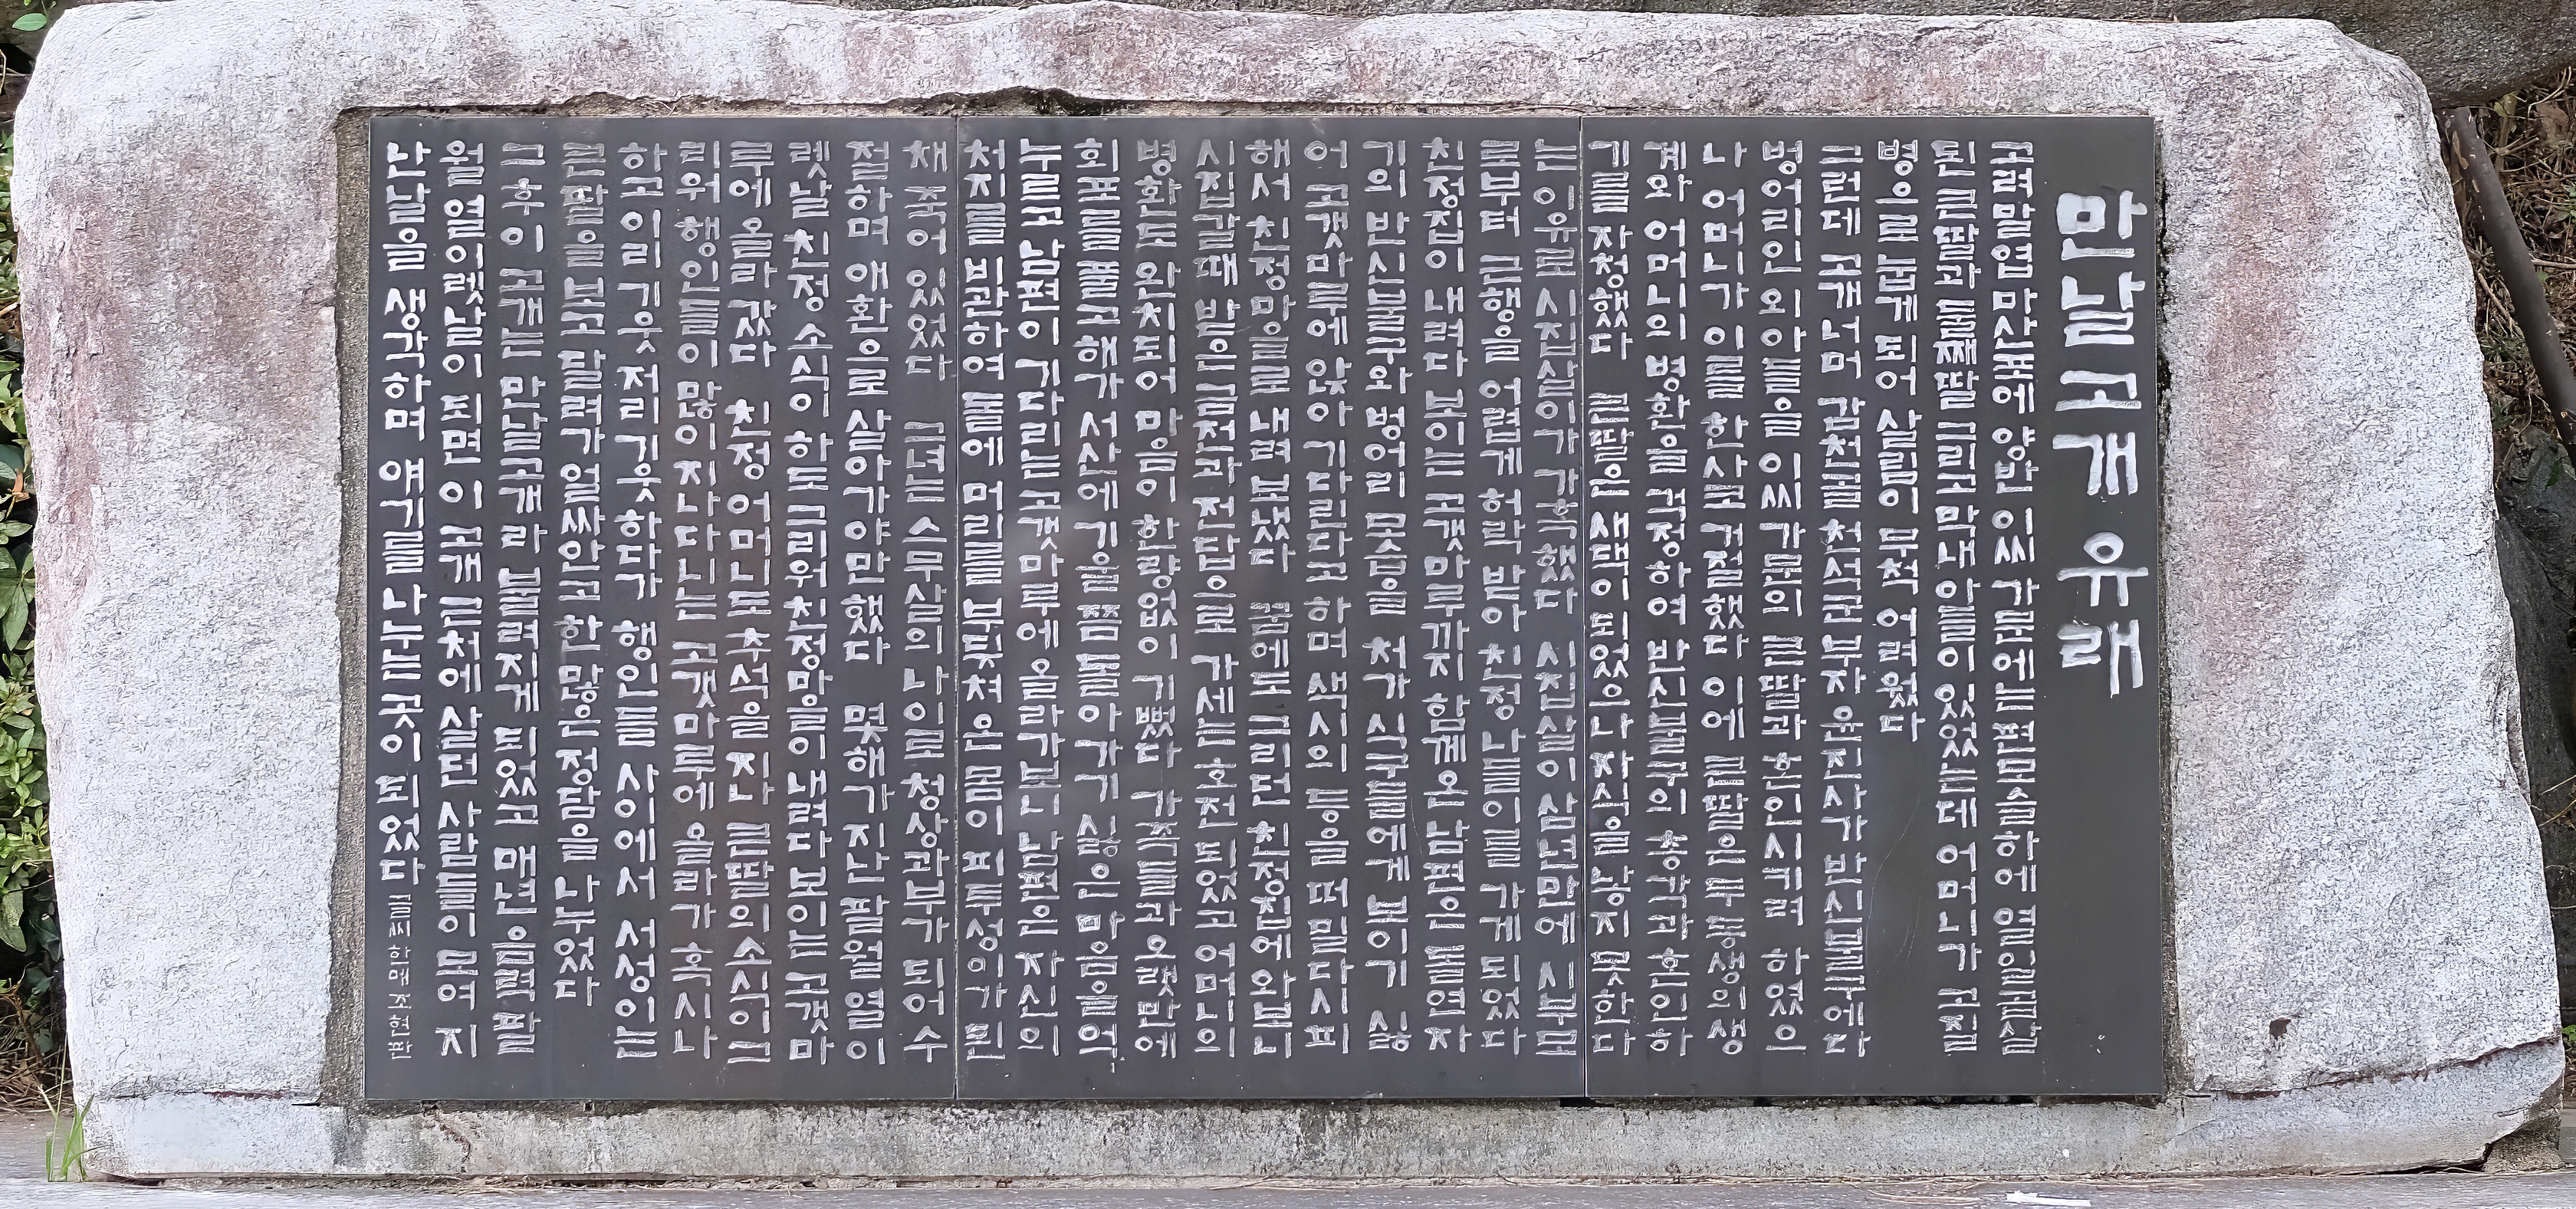 만날고개 유래
고려말엽 마산포에 양반 이씨 가문에는 편모슬하에 열일곱살
된 큰딸과 둘째딸 그리고 막내아들이 있었는데 어머니가 고질
병으로 눕게 되어 살림이 무척 어려웠다
그런데 고개너머 감천골 천석군 부자 윤진사가 반신불구에다
벙어리인 외아들을 이씨가문의 큰딸과 혼인시키려 하였으
나 어머니가 이를 한사코 거절했다 이에 큰딸은 두 동생의 생
계와 어머니의 병환을 걱정하여 반신불구의 총각과 혼인하
기를 자청했다 큰딸은 새댁이 되었으나 자식을 낳지 못한다
는 이유로 시집살이가 가혹했다 시집살이 삼년만에 시부모
로부터 근행을 어렵게 허락 받아 친정 나들이를 가게 되었다
친정집이 내려다 보이는 고갯마루까지 함께온 남편은 돌연 자
기의 반신불구와 벙어리 모습을 처가 식구들에게 보이기 싫
어 고갯마루에 앉아 기다린다고 하며 색시의 등을 떠밀다시피
해서 친정마을로 내려 보냈다 꿈에도 그리던 친정집에 와보니
시집갈때 받은 금전과 전답으로 가세는 호전되었고 어머니의
병환도 완치되어 마음이 한량없이 기뻤다 가족들과 오랫만에
회포를 풀고 해가 서산에 기울쯤 돌아가기 싫은 마음을 억
누르고 남편이 기다리는 고갯마루에 올라가보니 남편은 자신의
처지를 비관하여 돌에 머리를 부딪쳐 온 몸이 피투성이가 된
채 죽어 있었다 그녀는 스무살의 나이로 청상과부가 되어 수
절하며 애환으로 살아가야만 했다 몇해가 지난 팔월 열이
렛날 친정 소식이 하도 그리워 친정망을이 내려다 보이는 고갯마
루에 올라 갔다 친정 어머니도 추석을 지나 큰딸의 소식이 그
리워 행인들이 많이 지나다니는 고갯마루에 올라가 혹시나
하고 이리 기웃 저리 기웃하다가 행인들 사이에서 서성이는
큰딸을 보고 달려가 얼싸안고 한 많은 정담을 나누었다
그후 이 고개는 만날고개라 불려지게 되었고 매년 음력 팔
월 열이렛날이 되면 이 고개 근처에 살던 사람들이 모여 지
난날을 생각하며 얘기를 나누는 곳이 되었다
글씨 한매 조현판